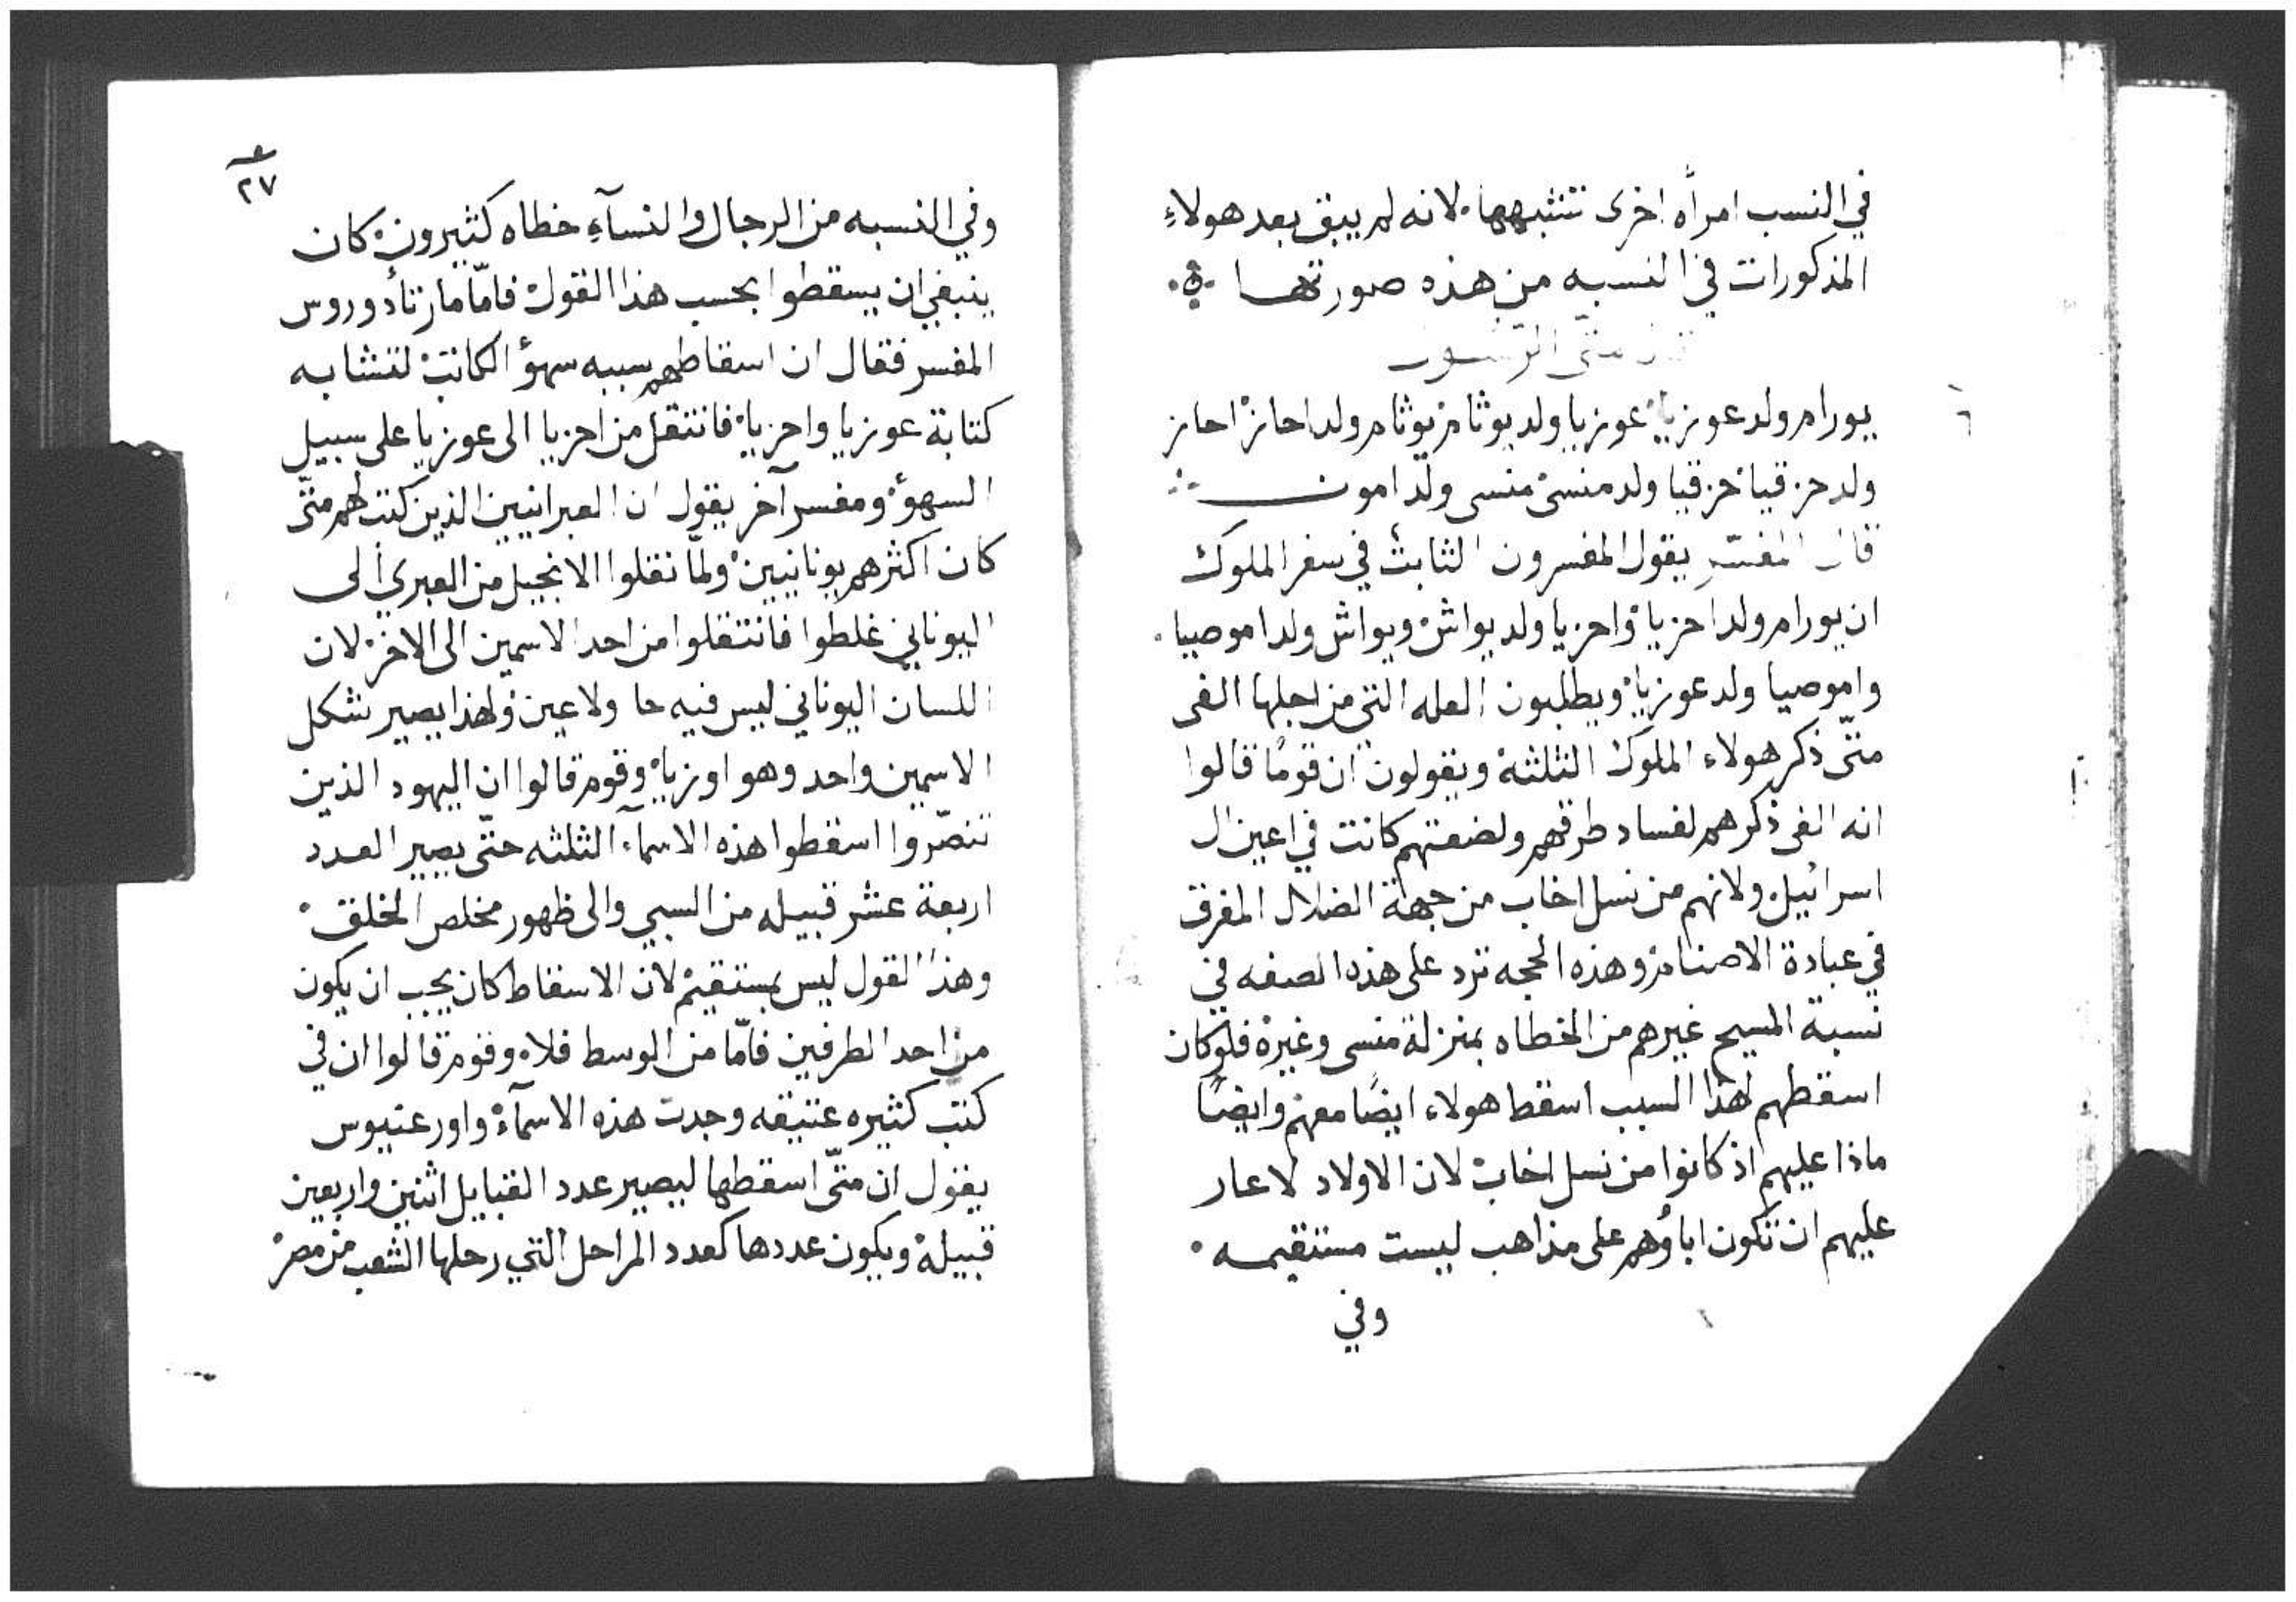 في النسب امرأه اخرى تتشبهها. لانه لم يبق بعد هولاءِ
المذكورات في النسبه من هذه صورتها
قال متّى الرسول
يورام ولد عوزيا عوزيا ولد يوثام يوثام ولد احاز احاز
ولد حزقيا حزقيا ولد منسى منسى ولد امون
قال المفسّر يقول المفسرون الثابث في سفر الملوك
ان يورام ولد احزيا واحزيا ولد يواش ويواش ولد اموصيا.
واموصيا ولد عوزيا ويطلبون العله التي من اجلها الغى
متّى ذكر هولاء الملوك الثلثة ويقولون ان قومًا قالوا
انه الغى ذكرهم لفساد طرقهم ولضعتهم كانت في اعين ال
اسرائيل ولانهم من نسل اخاب من جهة الضلال المغرق
في عبادة الاصنام وهذه الحجه ترد على هذه الصفه في
نسبة المسيح غيرهم من الخطاه بمنزلة منسى وغيره فلو كان
اسقطهم لهذا السبب اسقط هولاء ايضًا معهم وايضًا
ماذا عليهم اذ كانوا من نسل اخاب لان الاولاد لا عار
عليهم ان تكون اباؤهم على مذاهب ليست مستقيمه
وفي
٢٧
وفي النسبه من الرجال والنسآءِ خطاه كثيرون كان
ينبغي ان يسقطوا بحسب هذا القول فامّا مار تأدوروس
المفسر فقال ان اسقاطهم سببه سهؤ الكاتب لتشابه
كتابة عوزيا واحزيا فانتقل من احزيا الى عوزيا على سبيل
السهؤ ومفسر آخر يقول ان العبرانيين الذين كتب لهم متّى
كان اكثرهم يونانيين ولمّا نقلوا الانجيل من العبري الى
اليوناني غلطوا فانتقلوا من احد الاسمين الى الاخر لان
اللسان اليوناني ليس فيه حا ولا عين ولهذا يصير شكل
الاسمين واحد وهو اوزيا وقوم قالوا ان اليهود الذين
تنصّروا اسقطوا هذه الاسمآء الثلثه حتّى يصير العدد
اربعة عشر قبيله من السبي والى ظهور مخلص الخلق
وهذا القول ليس بمستقيم لان الاسقاط كان يجب ان يكون
من احد الطرفين فامّا من الوسط فلا وقوم قالوا ان في
كتب كثيره عتيقه وجدت هذه الاسمآء واورعنيوس
يقول ان متّى اسقطها ليصير عدد القبايل اثنين واربعين
قبيلة ويكون عددها كعدد المراحل التي رحلها الشعب من مصر